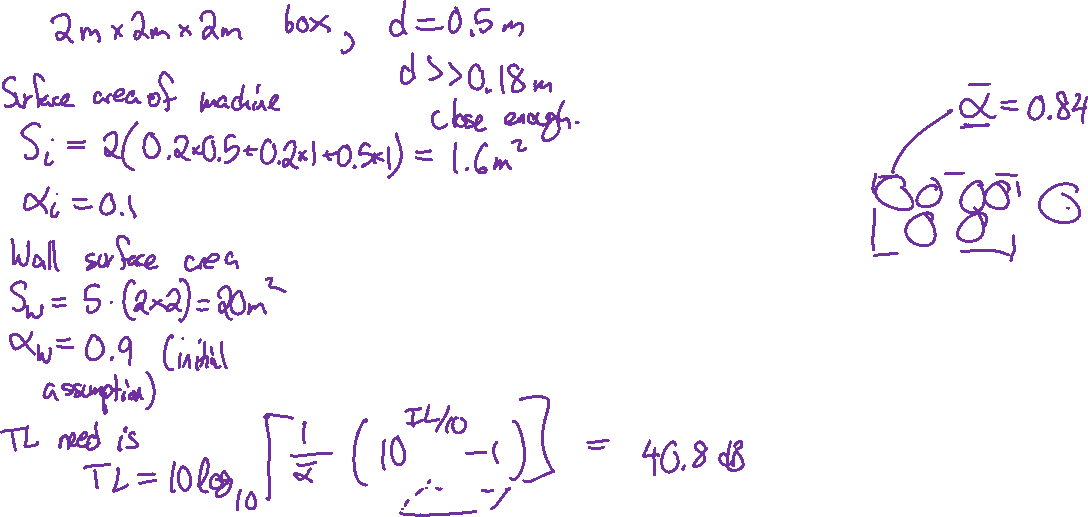 2m×2m×2m box, d=0.5m
d>>0.18m
close enough.
Surface area of machine
Si = 2(0.2×0.5+0.2×1+0.5×1) = 1.6m²
αi = 0.1
ᾱ = 0.84
Wall surface area
Sw = 5·(2×2) = 20m²
αw = 0.9 (initial
assumption)
TL need is
TL = 10log₁₀[1/ᾱ (10^(IL/10) −1)] = 40.8 dB